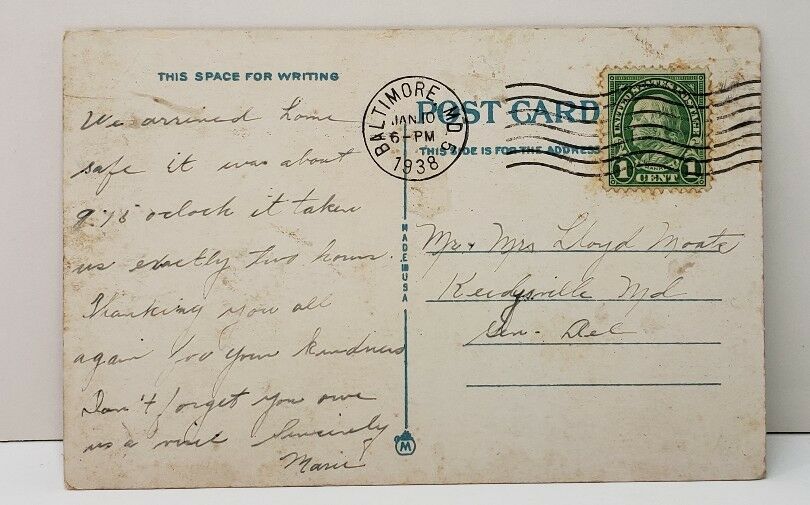 THIS SPACE FOR WRITING
We arrived home
safe it was about
9:15 oclock it taken
us exactly two hours.
Thanking you all
again for your kindness
Don't forget you owe
us a visit Sincerely
Marie
BALTIMORE, MD. 3
JAN 10
6-PM
1938
POST CARD
THIS SIDE IS FOR THE ADDRESS
UNITED STATES POSTAGE
1 CENT 1
MADE IN USA
M
Mr. + Mrs Lloyd Moats
Keedysville Md
Gen. Del